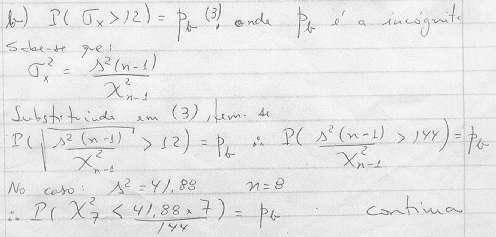 b) P( σx > 12) = pb (3), onde pb é a incógnita
Sabe-se que:
σx² = s²(n-1) / χ²n-1
Substituindo em (3), tem-se
P( √ s²(n-1) / χ²n-1 > 12) = pb ∴ P( s²(n-1) / χ²n-1 > 144) = pb
No caso: s² = 41,88 n = 8
∴ P( χ²7 < 41,88 x 7 / 144 ) = pb continua